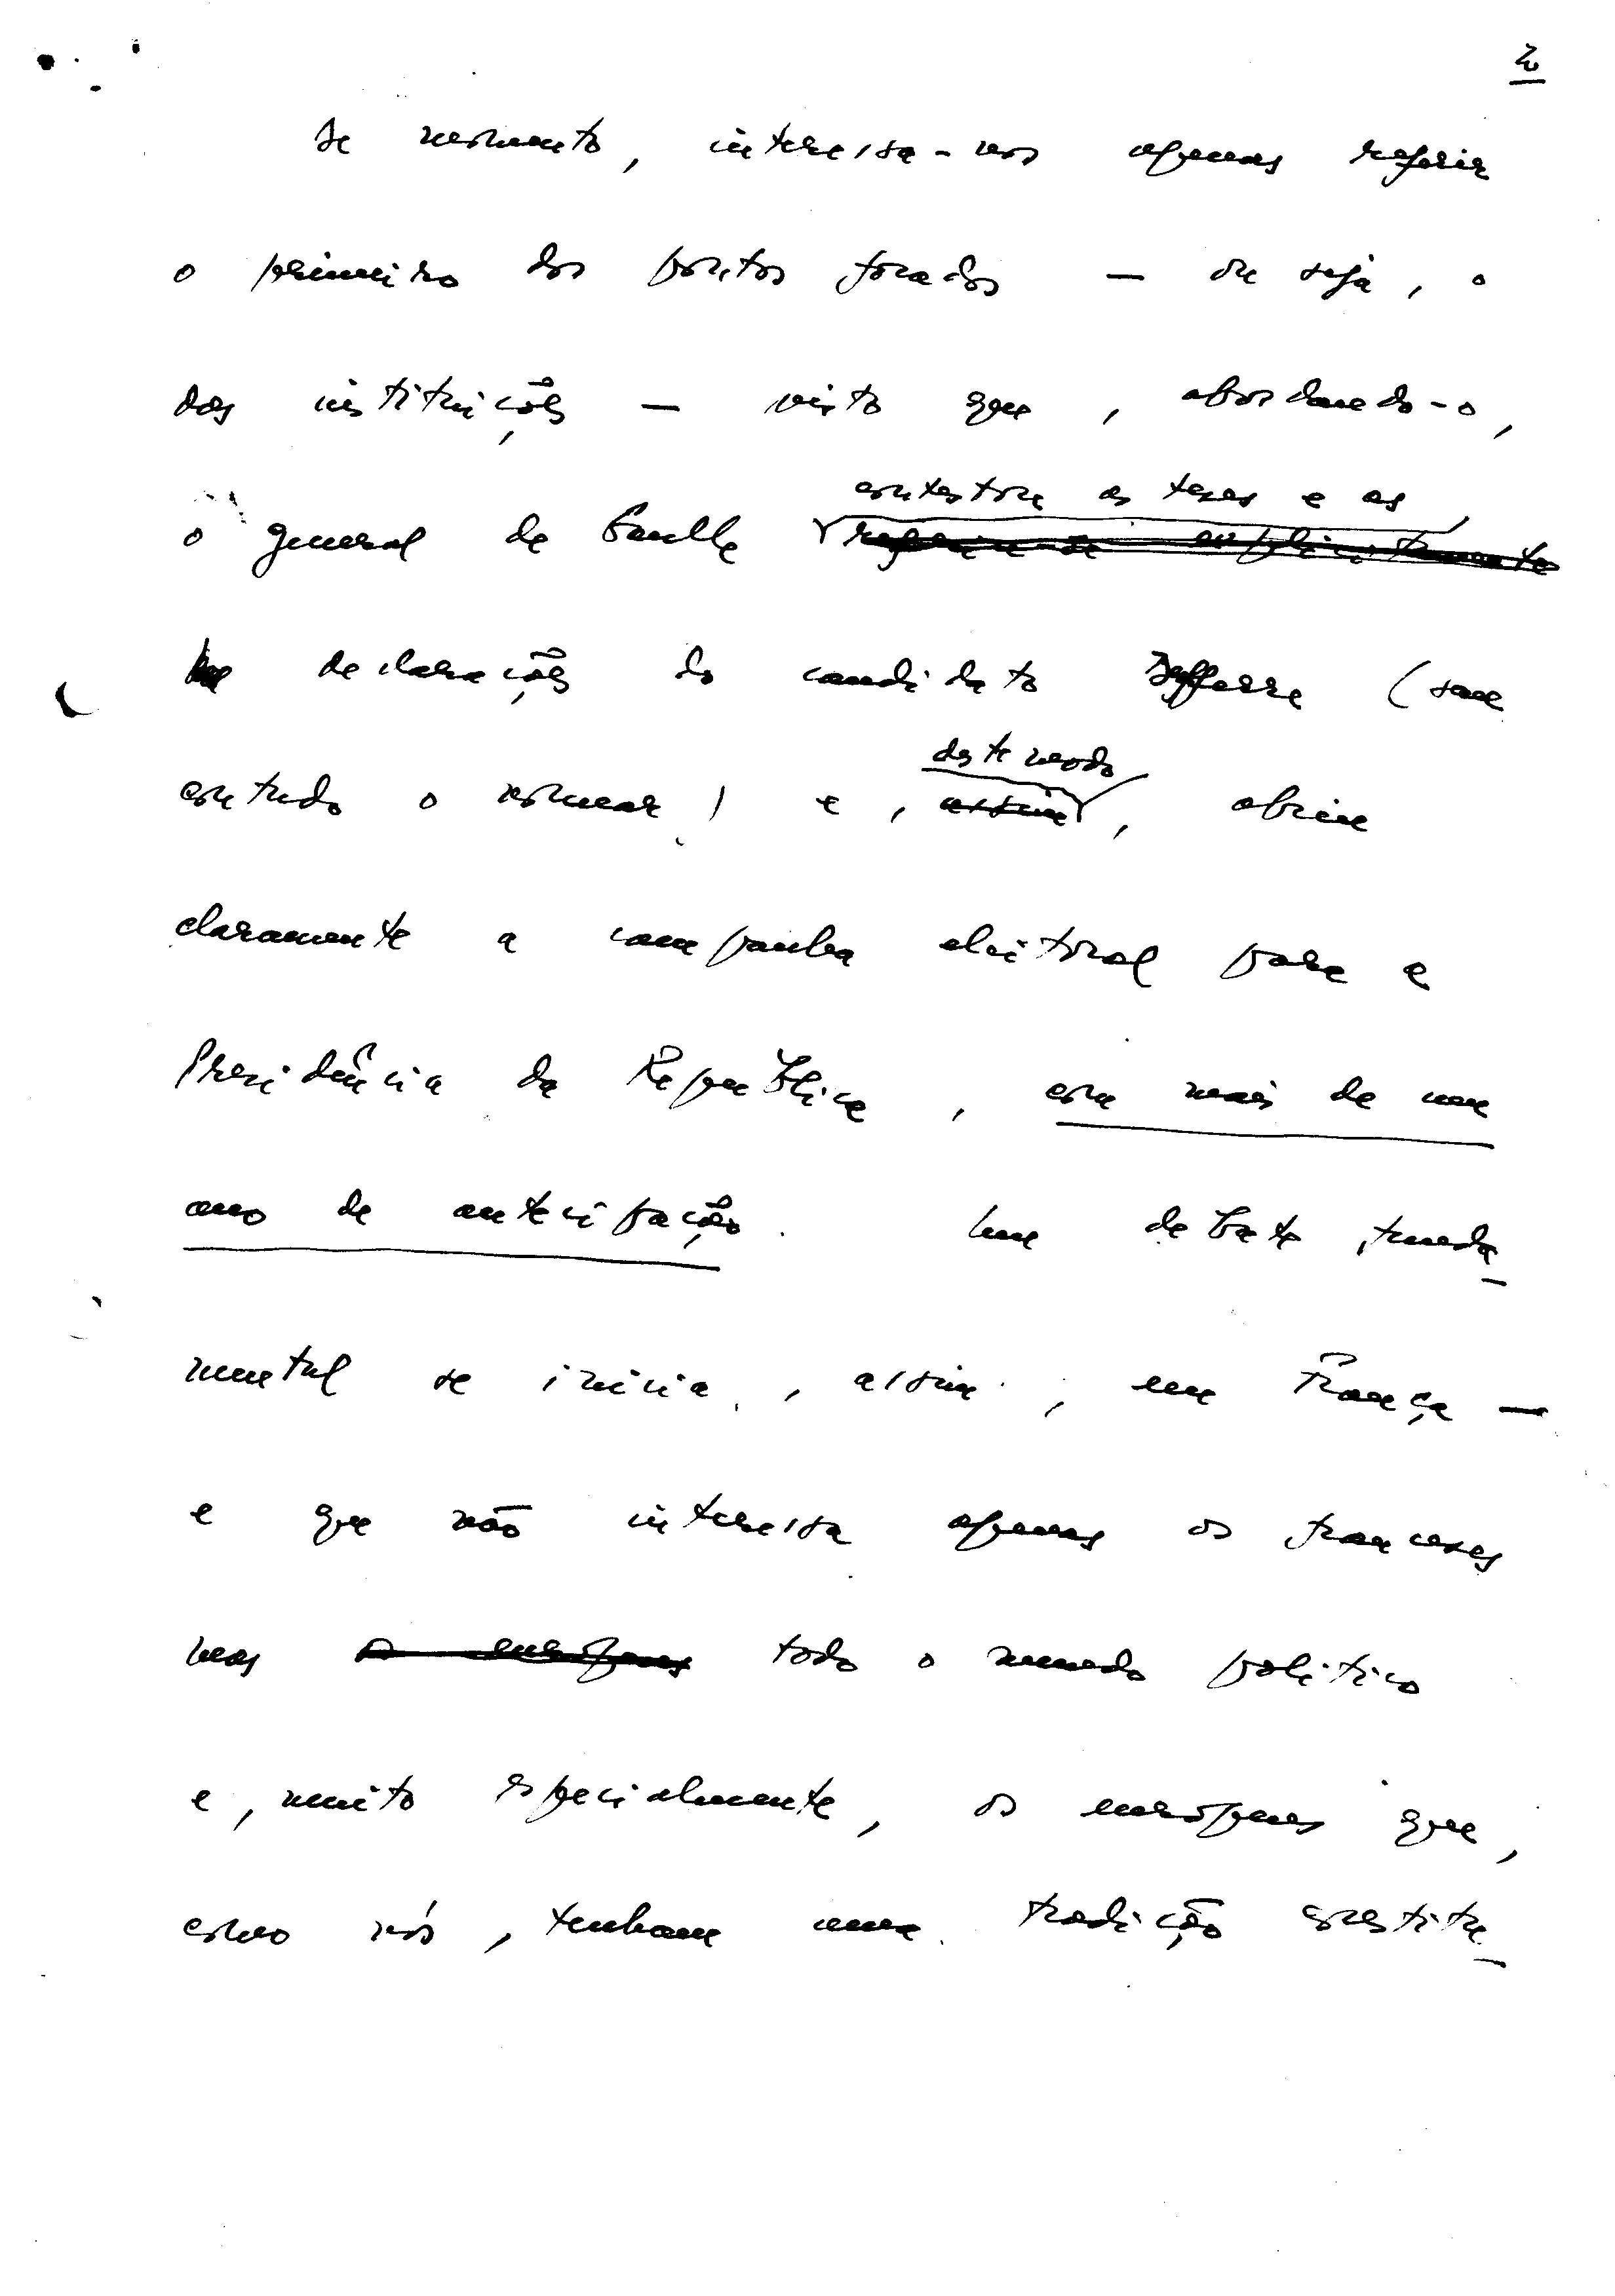 2
De momento, interessa-nos apenas referir
o primeiro dos pontos focados — ou seja, o
das instituições — visto que, abordando-o,
contestou as teses e as
o general de Gaulle referiu-se explicitamente
declarações do candidato Defferre (sem
deste modo
contudo o nomear) e, assim, abriu
claramente a campanha eleitoral para a
Presidência da República, com mais de um
ano de antecipação. Um debate funda-
mental se inicia, assim, em França —
e que não interessa apenas os franceses
mas os europeus todo o mundo político
e, muito especialmente, os europeus que,
como nós, tenham uma tradição constitu-